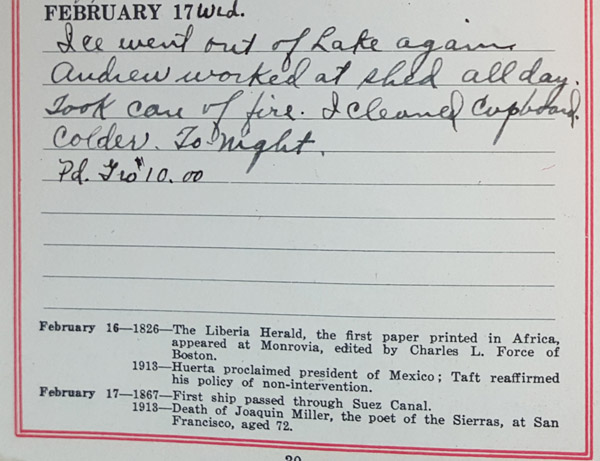 FEBRUARY 17 Wed.
Ice went out of Lake again
Andrew worked at shed all day.
Took care of fire. I cleaned Cupboard.
Colder. To night.
Pd. $10.00
February 16—1826—The Liberia Herald, the first paper printed in Africa,
appeared at Monrovia, edited by Charles L. Force of
Boston.
1913—Huerta proclaimed president of Mexico; Taft reaffirmed
his policy of non-intervention.
February 17—1867—First ship passed through Suez Canal.
1913—Death of Joaquin Miller, the poet of the Sierras, at San
Francisco, aged 72.